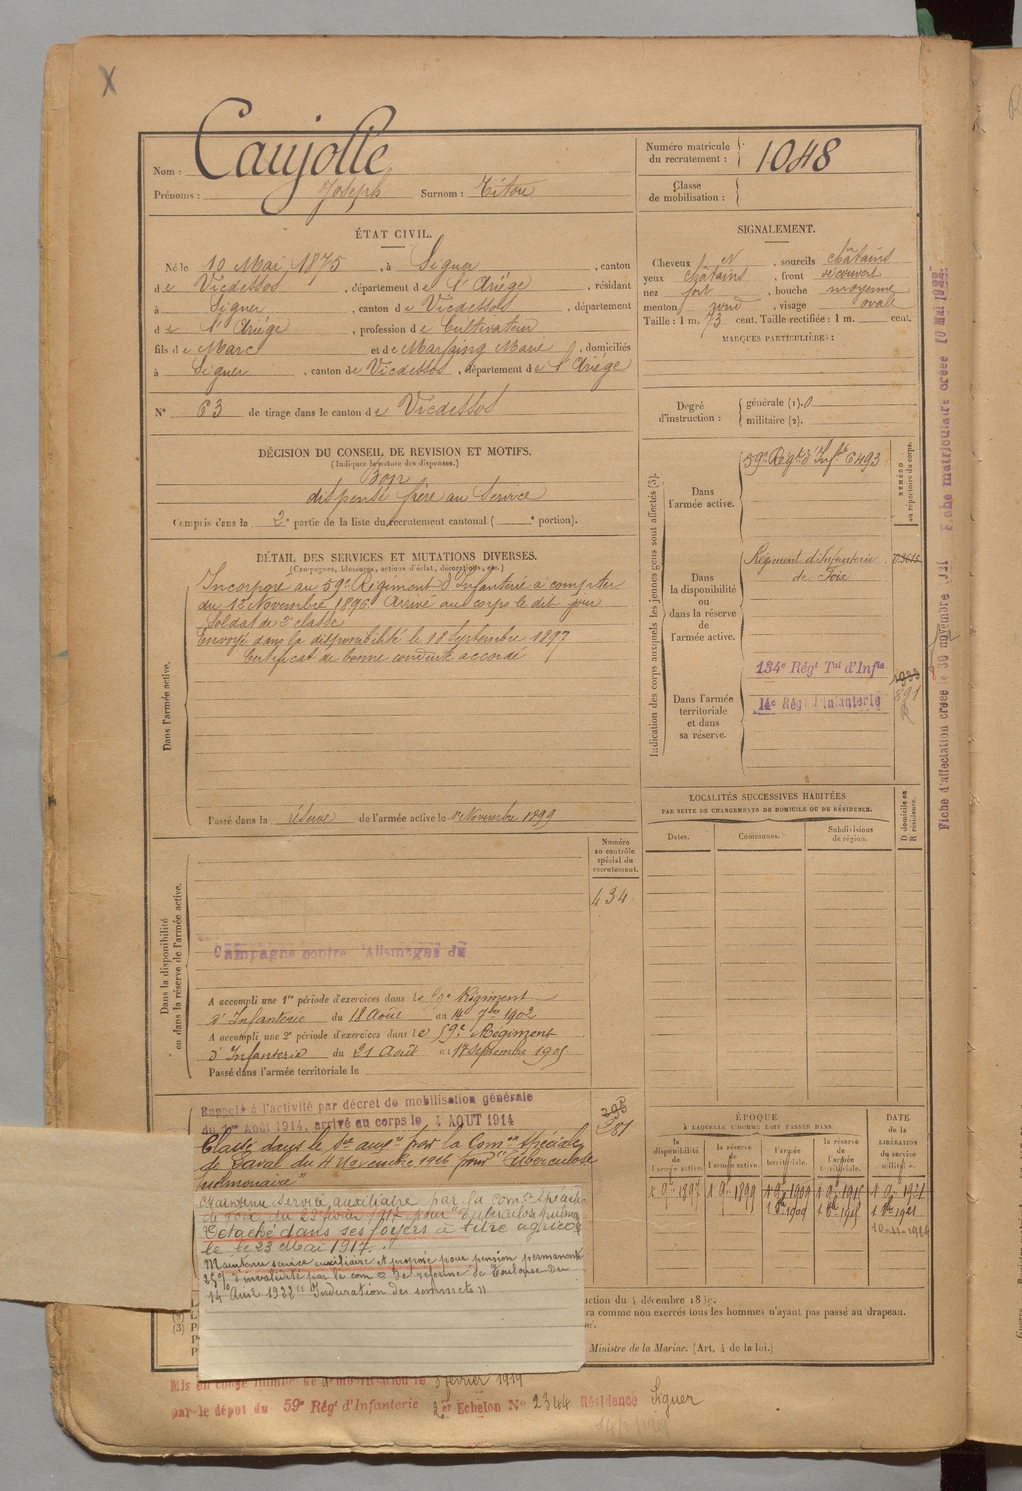 X
Nom : Caujolle
Prénoms : Joseph Surnom : Titou
Numéro matricule du recrutement : 1048
Classe de mobilisation :
ÉTAT CIVIL.
Né le 10 Mai 1875, à Siguer, canton
de Vicdessos, département de l'Ariége, résidant
à Siguer, canton de Vicdessos, département
de l'Ariége, profession de Cultivateur
fils de Marc et de Marfaing Marie, domiciliés
à Siguer, canton de Vicdessos, département de l'Ariége
N° 63 de tirage dans le canton de Vicdessos
SIGNALEMENT.
Cheveux et, sourcils châtains
yeux châtains, front découvert
nez fort, bouche moyenne
menton rond, visage ovale
Taille : 1 m. 73 cent. Taille rectifiée : 1 m. cent.
MARQUES PARTICULIÈRES :
Degré d'instruction : générale (1). 0
militaire (2).
DÉCISION DU CONSEIL DE REVISION ET MOTIFS.
(Indiquer la nature des dispenses.)
Bon
dispensé frère au Service
Compris dans la 2e partie de la liste du recrutement cantonal ( e portion).
DÉTAIL DES SERVICES ET MUTATIONS DIVERSES.
(Campagnes, blessures, actions d'éclat, décorations, etc.)
Dans l'armée active.
Incorporé au 59e Régiment d'Infanterie à compter
du 13 Novembre 1896. Arrivé au corps le dit jour
Soldat de 2e classe
Envoyé dans la disponibilité le 18 Septembre 1897
Certificat de bonne conduite accordé
Passé dans la réserve de l'armée active le 1er Novembre 1899
Indication des corps auxquels les jeunes gens sont affectés (3).
NUMÉRO au répertoire du corps.
Dans l'armée active.
59e Régt d'Infie 6493
Dans la disponibilité ou dans la réserve de l'armée active.
Régiment d'Infanterie
de Foix
Dans l'armée territoriale et dans sa réserve.
134e Régt Tal d'Infie
14e Régt d'Infanterie
891
LOCALITÉS SUCCESSIVES HABITÉES
PAR SUITE DE CHANGEMENTS DE DOMICILE OU DE RÉSIDENCE.
Dates. Communes. Subdivisions de région. D domicile ou R résidence.
Dans la disponibilité ou dans la réserve de l'armée active.
Numéro au contrôle spécial du recrutement.
434
Campagne contre l'Allemagne du
A accompli une 1re période d'exercices dans le Régiment
d'Infanterie du 18 Août au 14 7bre 1902
A accompli une 2e période d'exercices dans le 59e Régiment
d'Infanterie du 21 Août au 17 Septembre 1905
Passé dans l'armée territoriale le
Rappelé à l'activité par décret de mobilisation générale
du 1er Août 1914, arrivé au corps le 4 AOUT 1914
296
381
Classé dans le Sce auxre par la Comon spéciale
de Laval du 4 Novembre 1916 pour "Tuberculose
pulmonaire"
Maintenu service auxiliaire par la Comon spéciale
de Foix du 23 février 1917 pour "Tuberculose pulmon
Détaché dans ses foyers à titre agricole
le 23 Mai 1917.
Maintenu service auxiliaire et proposé pour pension permanente
25% d'invalidité par la com on de réforme de Toulouse du
14 Avril 1922 "Induration des sommets"
ÉPOQUE
À LAQUELLE L'HOMME DOIT PASSER DANS
la disponibilité de l'armée active. la réserve de l'armée active. l'armée territoriale. la réserve de l'armée territoriale.
DATE de la LIBÉRATION du service militaire.
1 9 1897 1 9 1899 1 9 1909 1 9 1915 1 9 1921
1 8bre 1909 1 8bre 1915 1 8bre 1921
10-11-1924
ction du 4 décembre 1889.
ra comme non exercés tous les hommes n'ayant pas passé au drapeau.
Ministre de la Marine. (Art. 4 de la loi.)
Mis en congé illimité de démobilisation le 5 février 1919
par le dépôt du 59e Régt d'Infanterie 2e Echelon N° 2344 Résidence Siguer
Fiche d'affectation créée le 30 novembre 1921 Fiche matriculaire créée 10 Mai 1922.